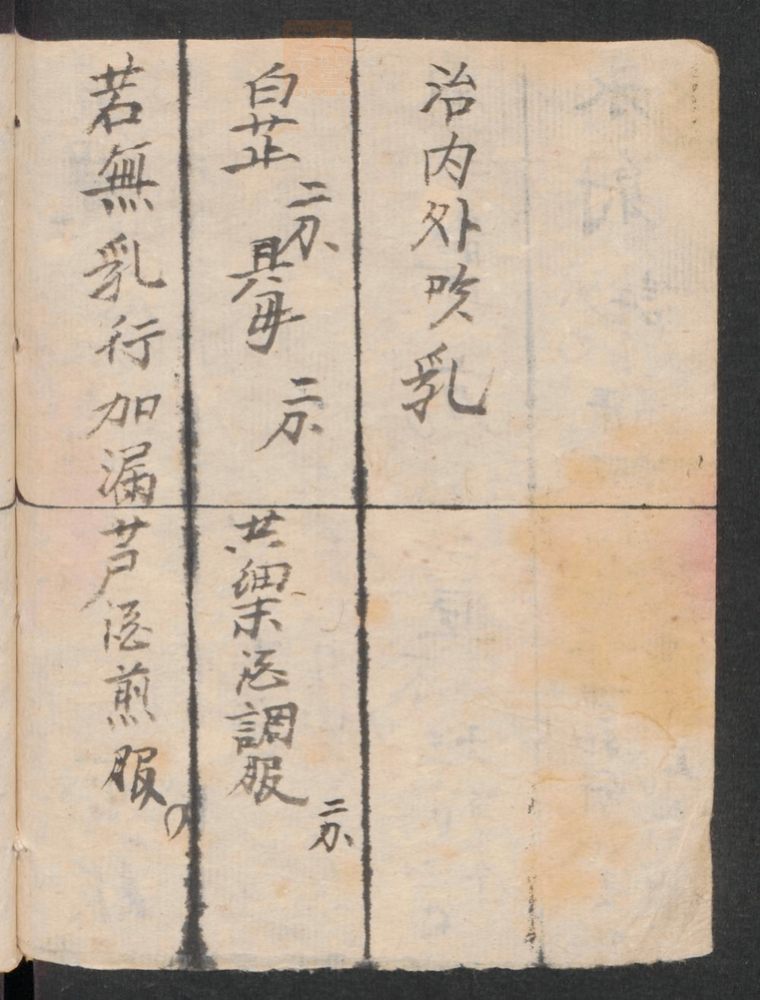 治内外吹乳
白芷 二分 具母 二分 共細末酒調服 二分
若無乳行加漏芦酒煎服